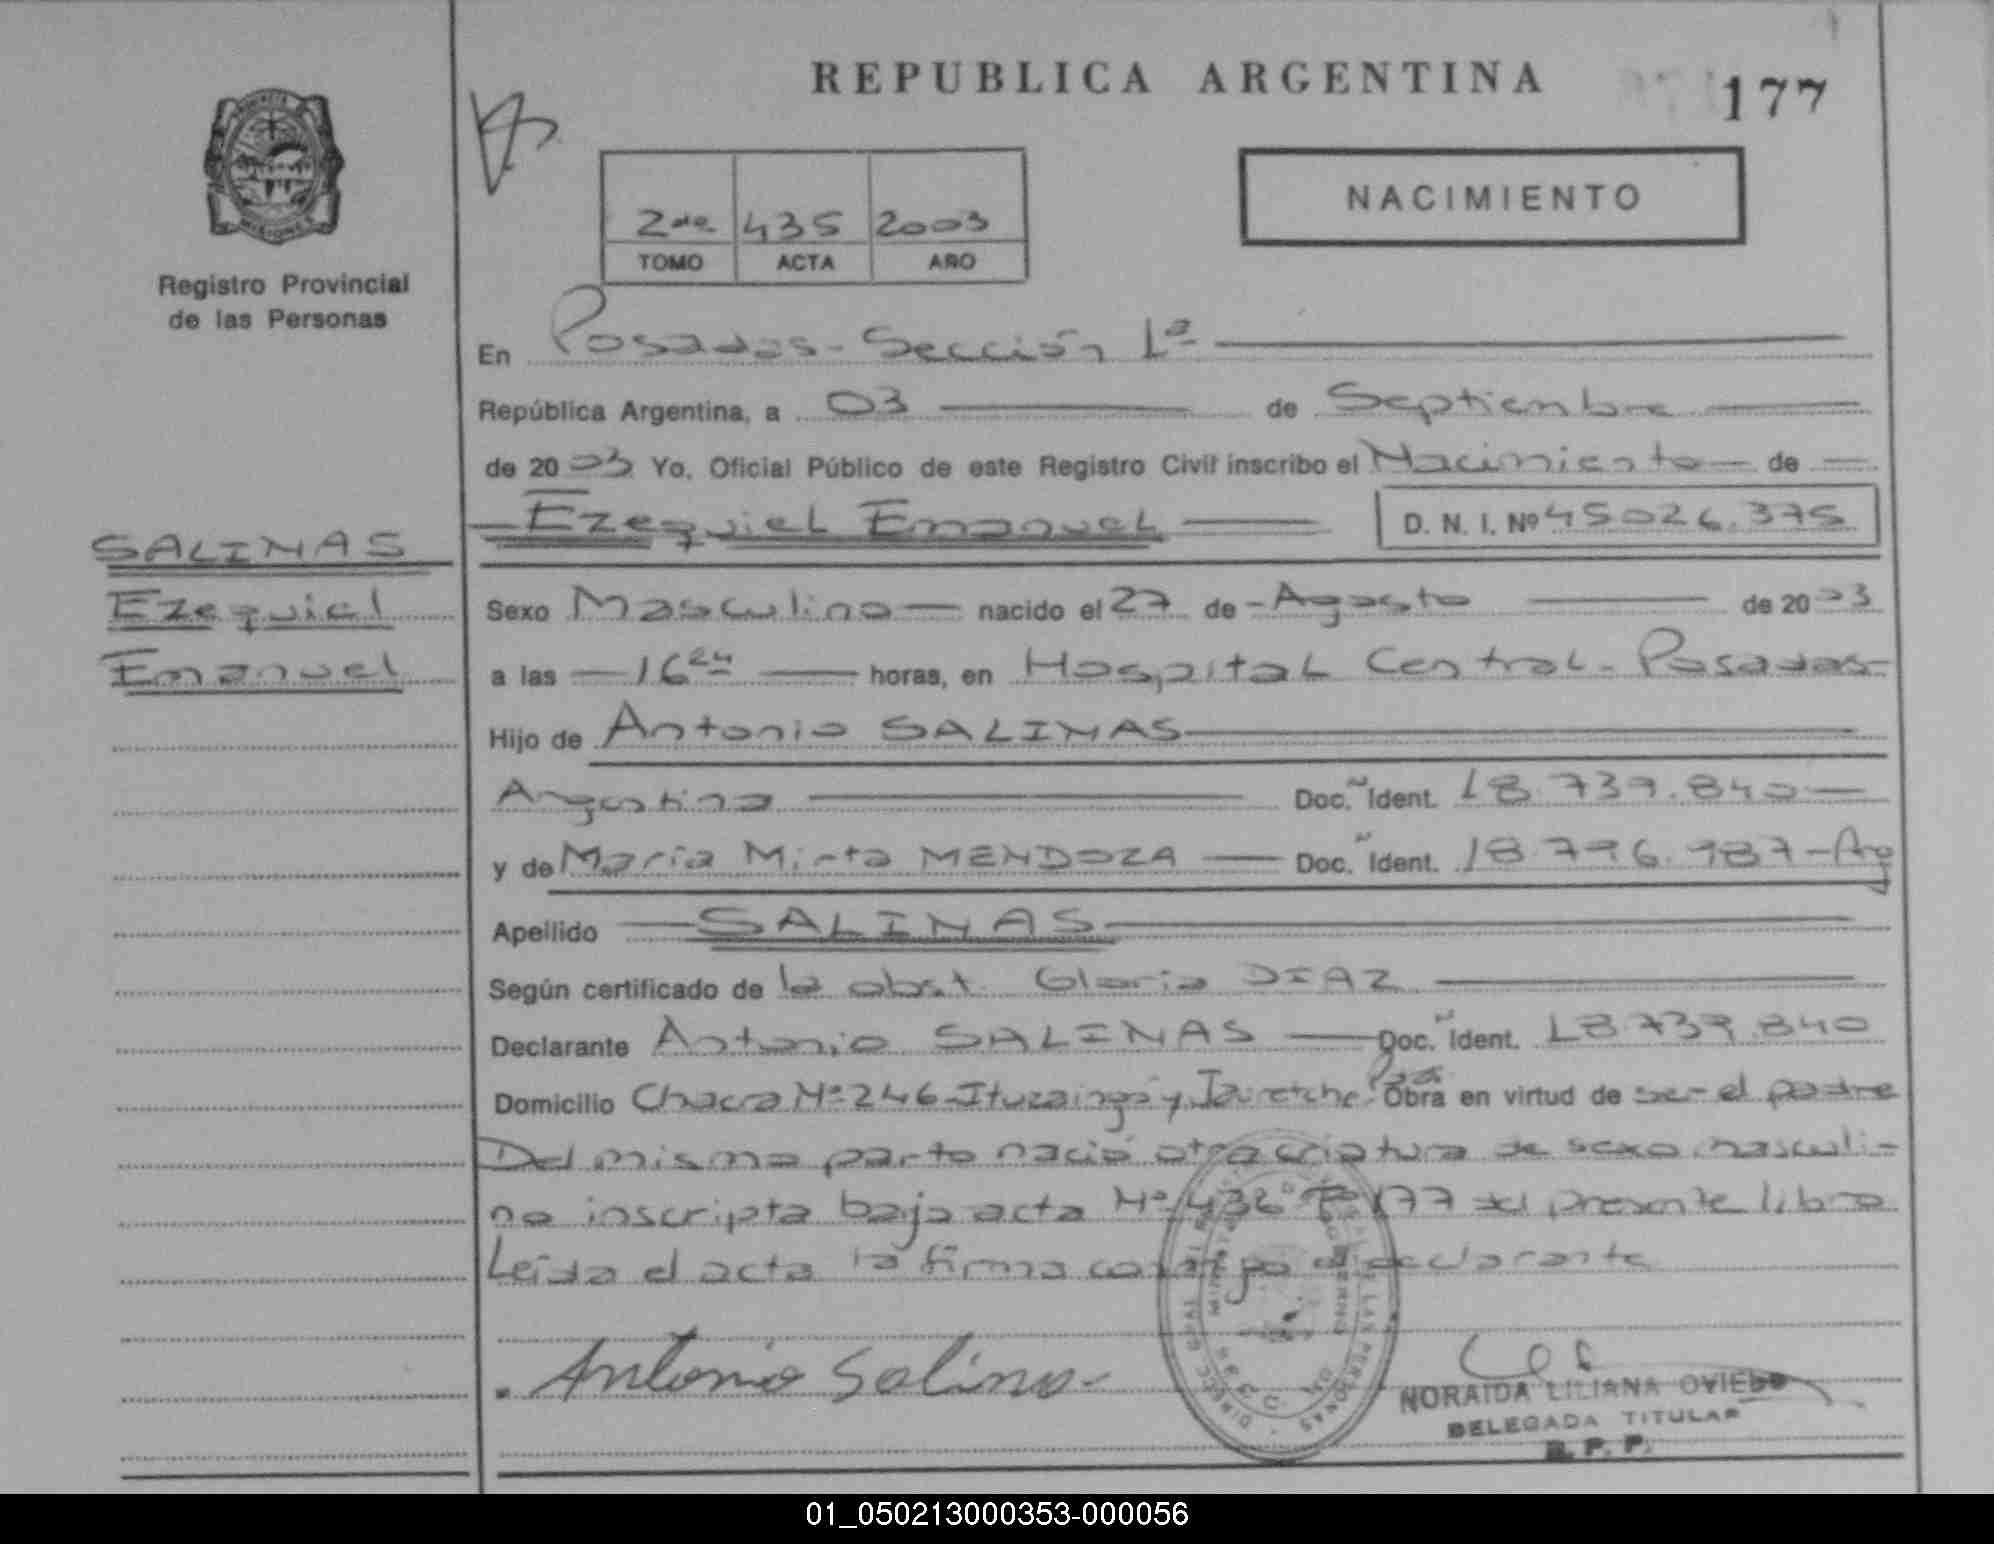 REPUBLICA ARGENTINA
177
NACIMIENTO
2do 435 2003
TOMO ACTA AÑO
Registro Provincial
de las Personas
En Posadas - Sección 1ª
República Argentina, a 03 de Septiembre
de 2003 Yo, Oficial Público de este Registro Civil inscribo el Nacimiento de
Ezequiel Emanuel D. N. I. Nº 45026.375
SALINAS
Ezequiel
Emanuel
Sexo Masculino nacido el 27 de Agosto de 2003
a las 16 24 horas, en Hospital Central - Posadas
Hijo de Antonio SALINAS
Argentina Doc. Ident. 18.739.840
y de María Mirta MENDOZA Doc. Ident. 18.796.987 - Arg
Apellido SALINAS
Según certificado de la obst. Gloria DIAZ
Declarante Antonio SALINAS Doc. Ident. 18.739.840
Domicilio Chacra Nº 246 - Ituzaingó y Jauretche Pdas Obra en virtud de ser el padre
Del mismo parto nació otra criatura de sexo masculi-
no inscripta bajo acta Nº 436 Fº 177 del presente libro
Leída el acta la firma conmigo el declarante
Antonio Salinas
NORAIDA LILIANA OVIEDO
DELEGADA TITULAR
R. P. P.
01_050213000353-000056